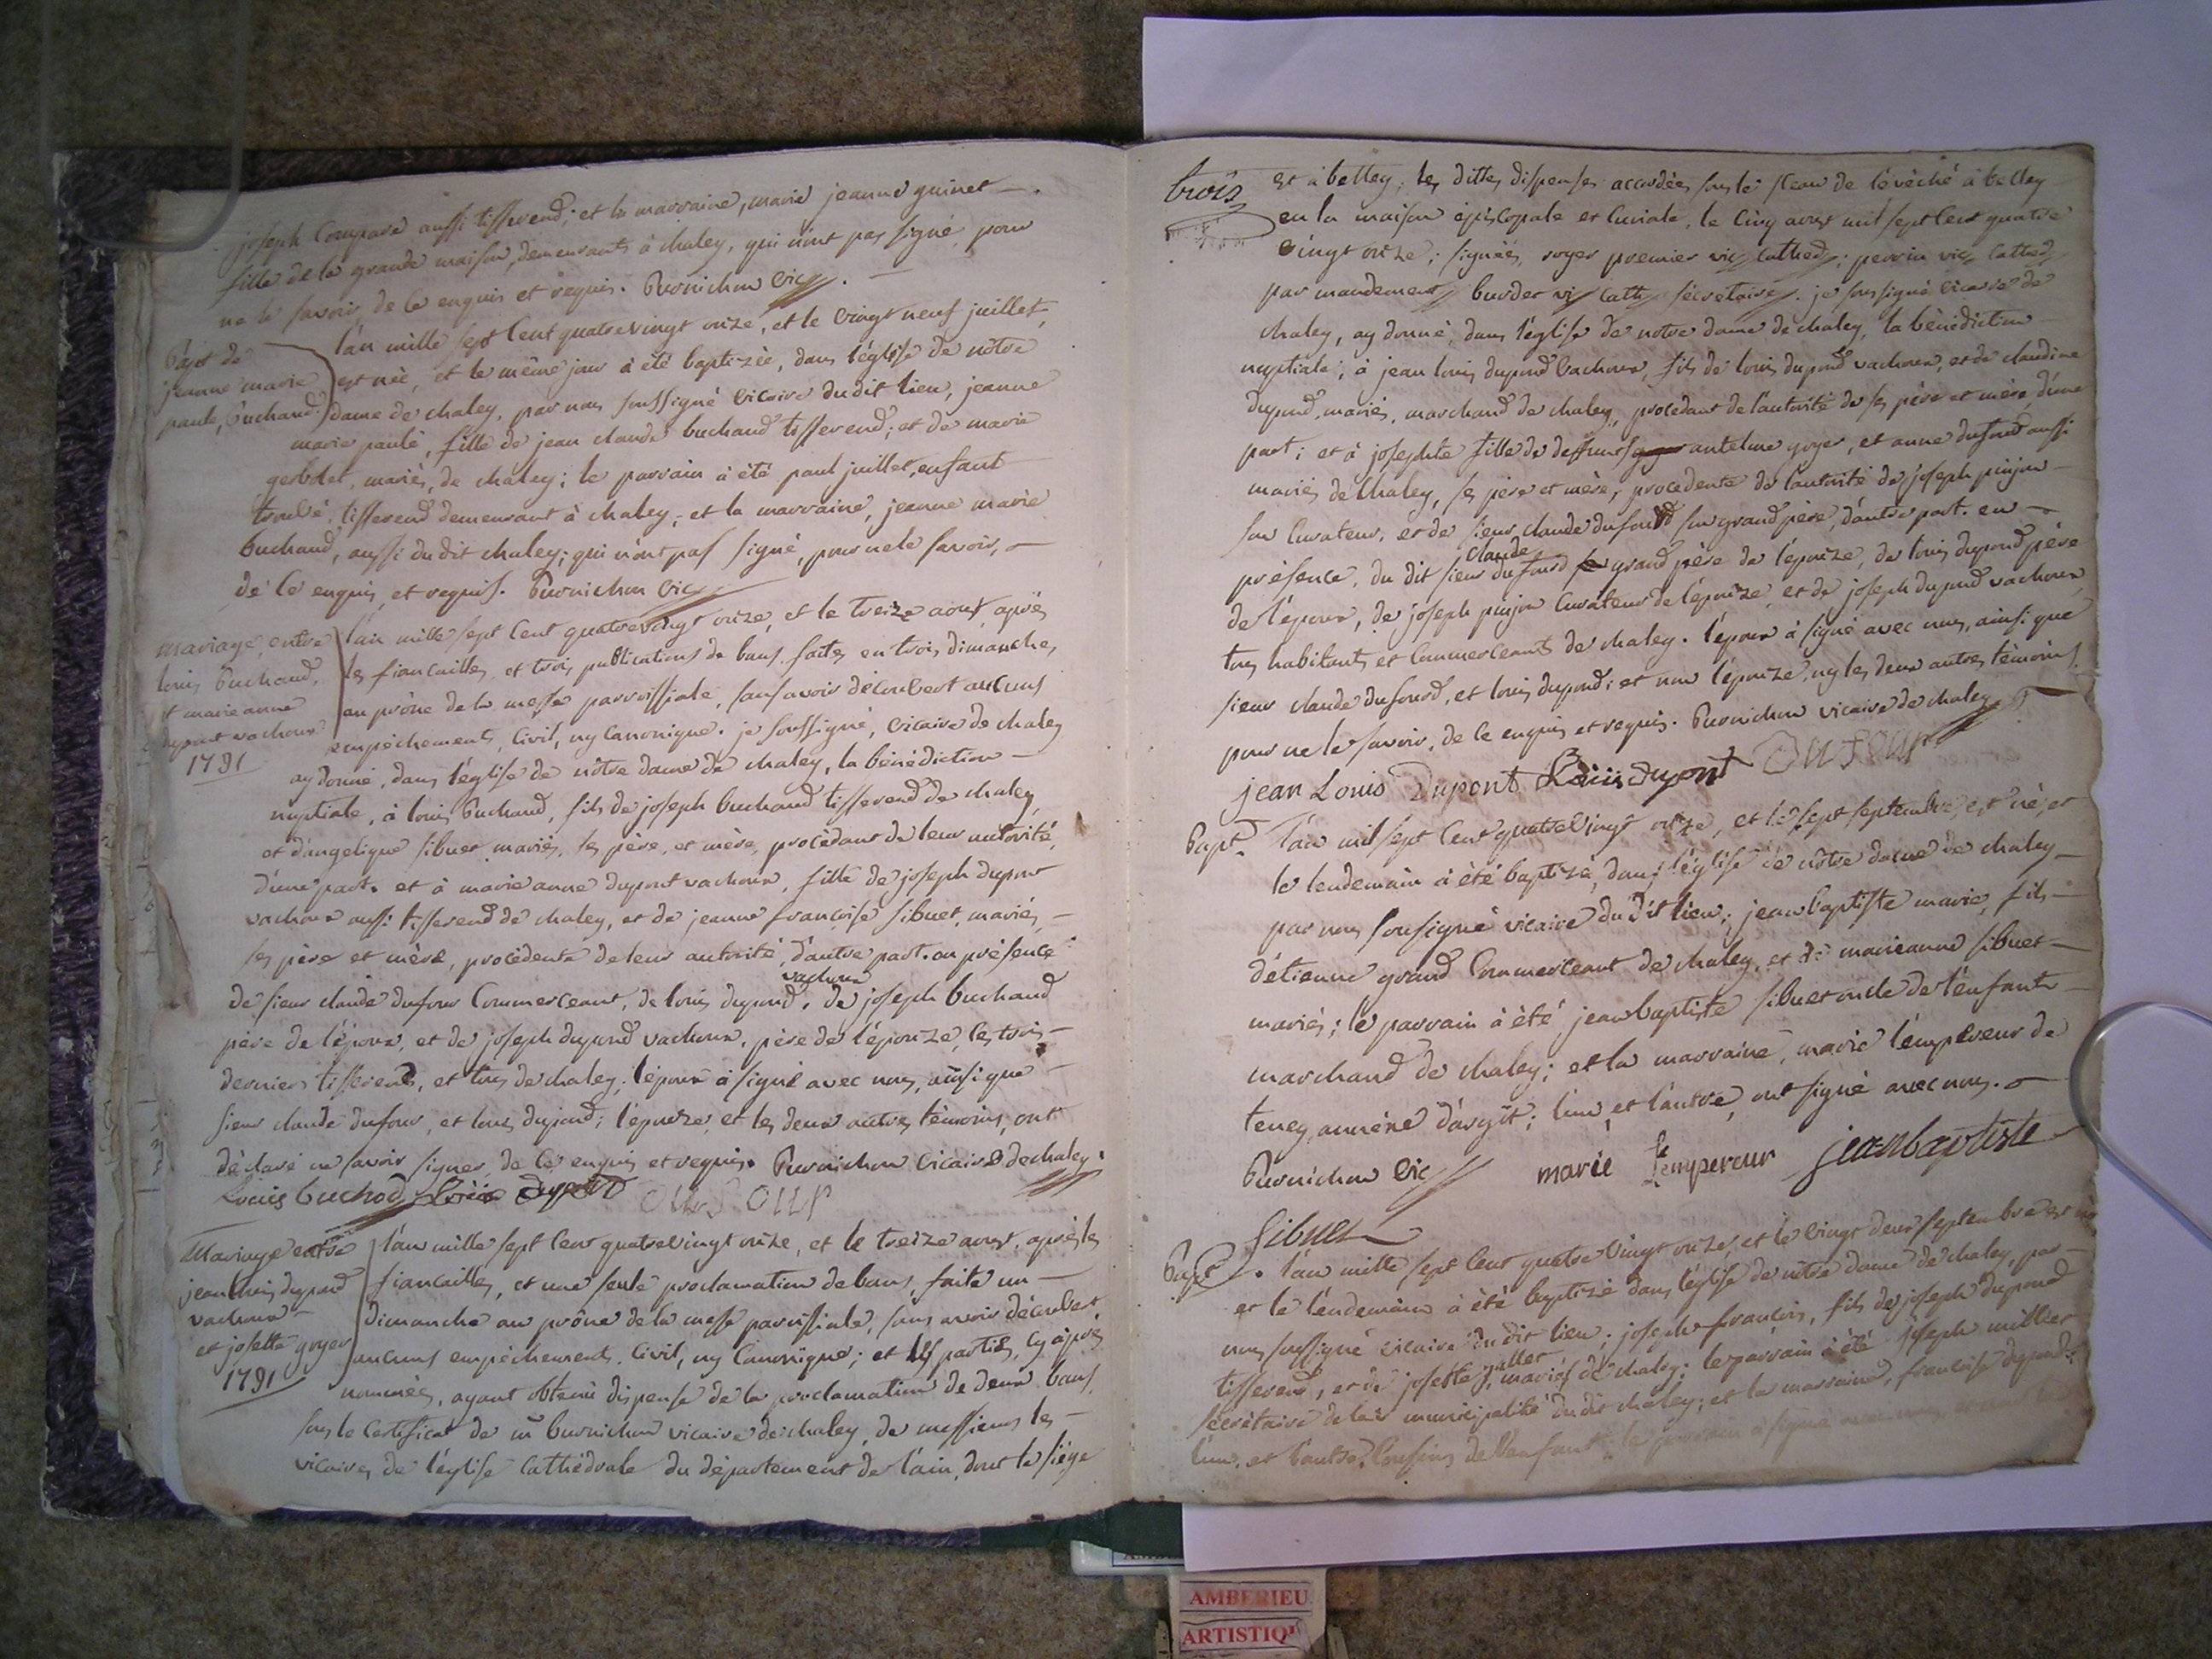 joseph Compare aussi tisserend; et la marraine, marie jeanne guinet
fille de la grande maison, demeurants à chaley, qui n'ont pas signé, pour
ne le savoir, de ce enquis et requis. Burnichon vic
Bapt de
jeanne marie
paule, buchand
l'an mille sept cent quatrevingt onze, et le vingt neuf juillet,
est née, et le même jour à été baptizée, dans l'église de nôtre
dame de chaley, par nous soussigné vicaire dudit lieu, jeanne
marie paule, fille de jean claude buchand tisserend; et de marie
gerbdet, mariés, de chaley; le parrain à été paul juillet, enfant
trouvé, tisserend demeurant à chaley, et la marraine, jeanne marie
buchand, aussi du dit chaley; qui n'ont pas signé, pour ne le savoir,
de ce enquis, et requis. Burnichon vic
mariage, entre
louis buchand,
et marie anne
dupont vachoux
1791
l'an mille sept cent quatrevingt onze, et le treize aoust, après
les fiancailles, et trois publications de bans, faites en trois dimanches,
au prône de la messe parroissiale, sans avoir découvert aucuns
empêchements, civil, ny canonique. je soussigné, vicaire de chaley
ay donné, dans l'église de nôtre dame de chaley, la bénédiction
nuptiale, à louis buchand, fils de joseph buchand tisserend de chaley,
et d'angelique sibuet mariés, ses père, et mère, procédant de leur autorité,
d'une part. et à marie anne dupont vachoux, fille de joseph dupont
vachoux aussi tisserend de chaley, et de jeanne françoise sibuet, mariés,
ses père et mère, procédente de leur autorité, d'autre part. en présence
de sieur claude dufour commerceant, de louis dupond, vachoux de joseph buchand
père de l'époux, et de joseph dupond vachoux, père de l'épouze, les trois
derniers tisserends, et tous de chaley; l'époux à signé avec nous, ainsi que
sieur claude dufour, et louis dupond; l'épouze, et les deux autres témoins, ont
déclaré ne savoir signer, de ce enquis et requis. Burnichon vicaire de chaley.
Louis buchod Loüis dupond Dufour
Mariage entre
jean louis dupond
vachoux
et josette goyer
1791
l'an mille sept cent quatrevingt onze, et le treize aoust, après les
fiancailles, et une seule proclamation de bans, faite un
dimanche au prône de la messe paroissiale, sans avoir découvert
aucuns empêchements, civil, ny canonique; et les parties, cy après
nommées, ayant obtenu dispense de la proclamation de deux bans,
sous le certificat de m Burnichon vicaire de chaley, de messieurs les
vicaires de l'église cathédrale du département de l'ain, dont le siége
trois
est à belley, les dittes dispenses accordées sous le sceau de l'évêché à belley
en la maison épiscopale et curiale, le cinq aoust mil sept cent quatre
vingt onze; signées, roger premier vic cathed; perrin vic cathed
par mandement burdet vic cath secrétaire. je soussigné vicaire de
chaley, ay donné, dans l'église de notre dame de chaley, la bénédiction
nuptiale; à jean louis dupond vachoux, fils de louis dupond vachoux, et de claudine
dupond, mariés, marchand de chaley, procédant de l'autorité de ses père et mère d'une
part; et à josephte fille de deffunts antelme goyer, et anne dufour aussi
mariés de chaley, ses père et mère, procedente de l'autorité de joseph pinjon
son curateur, et de sieur claude dufourd son grand père, d'autre part. en
présence, du dit sieur claude dufourd grand père de l'épouze, de louis dupond père
de l'époux, de joseph pinjon curateur de l'épouze, et de joseph dupond vachoux
tous habitants et commerceants de chaley. l'époux à signé avec nous, ainsi que
sieur claude dufourd, et louis dupond; et non l'épouze, ny les deux autres témoins
pour ne le savoir, de ce enquis et requis. Burnichon vicaire de chaley
jean Louis Dupont Loüis dupont Dufour
Bapt.
l'an mil sept cent quatrevingt onze, et le sept septembre, est né, et
le lendemain à été baptizé, dans l'église de nôtre dame de chaley
par nous sousigné vicaire du dit lieu; jean baptiste marie, fils
d'étienne grand commerceant de chaley, et de marieanne sibuet
mariés; le parrain à été jean baptiste sibuet oncle de l'enfant
marchand de chaley; et la marraine, marie l'empereur de
tenay, annéxe d'argit; l'un, et l'autre, ont signé avec nous.
Burnichon vic marie Lempereur jeanbaptiste
sibuet
Bapt
l'an mille sept cent quatre vingt onze, et le vingt deux septembre est né
et le lendemain à été baptizé dans l'église de nôtre dame de chaley, par
nous soussigné vicaire du dit lieu; joseph françois, fils de joseph dupond
tisserend, et de josette juillet, mariés de chaley; le parrain à été joseph millier
secrétaire de la municipalité du dit chaley; et la marraine, francoise dupond
l'un, et l'autre, cousins de l'enfant; le parrain à signé
AMBERIEU
ARTISTIQ